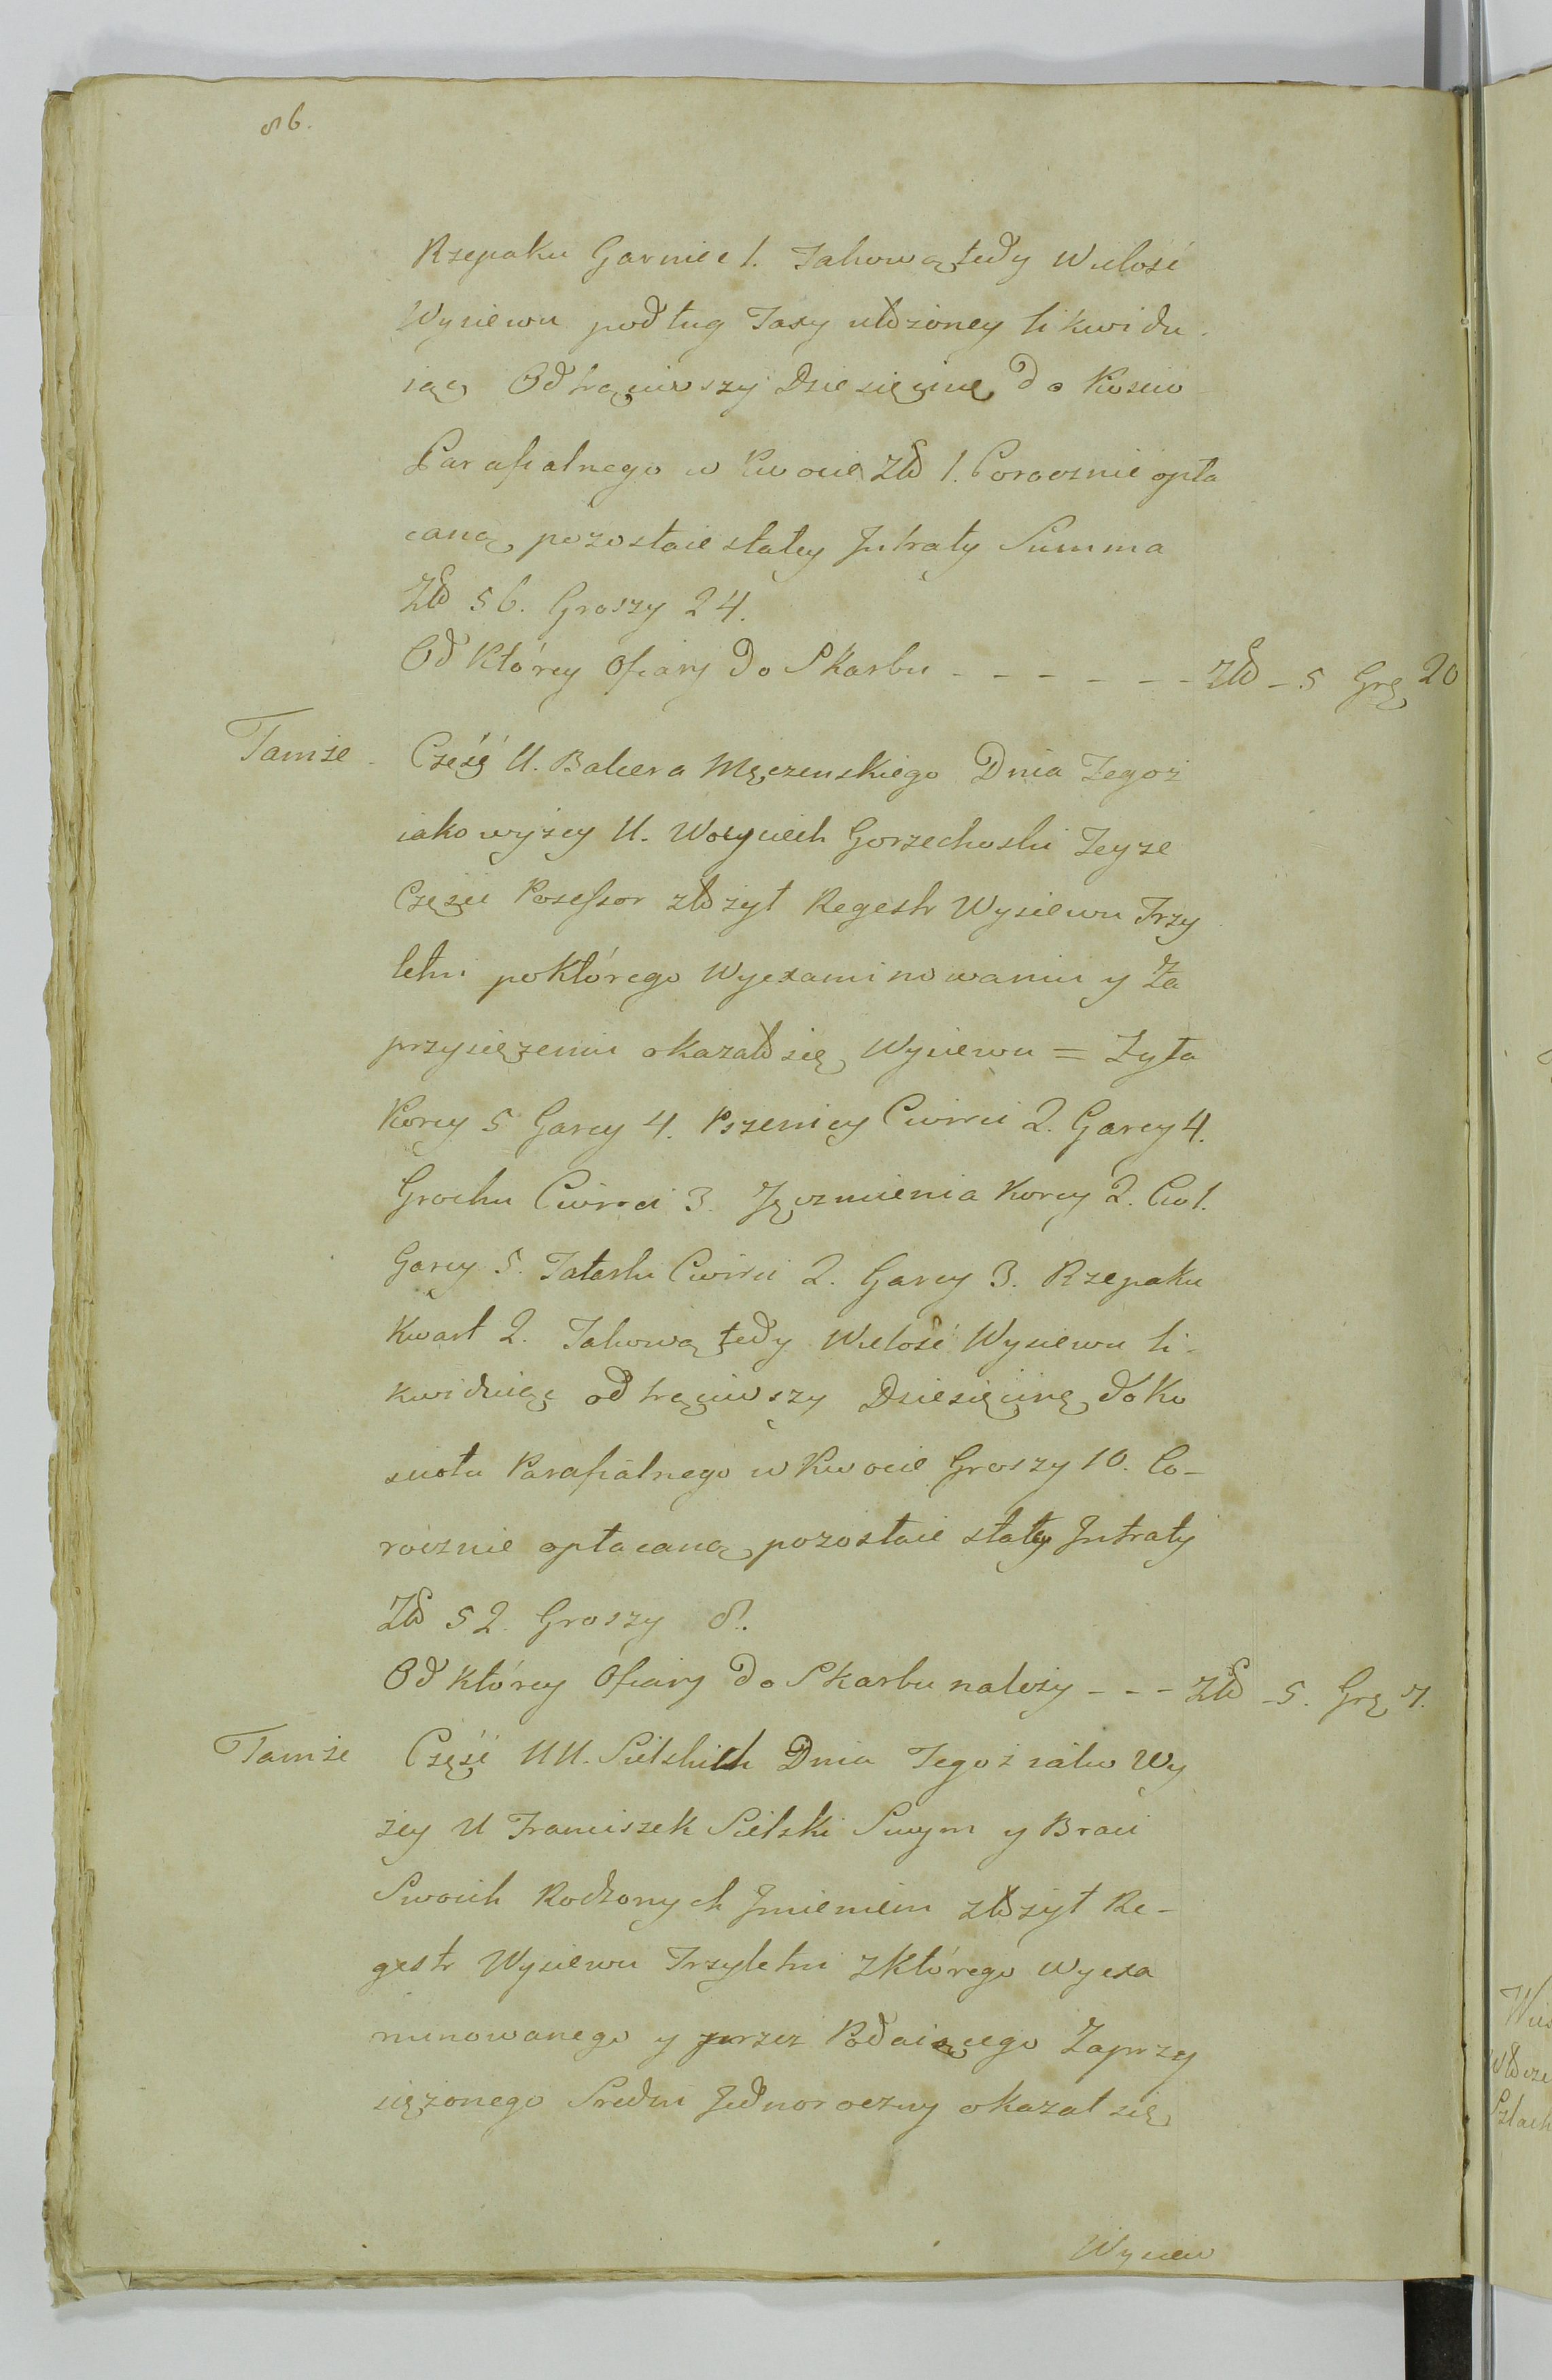 86.
Rzepaku Garniec 1. Takową tedy Wielość
Wysiewu podług Taxy ułożoney likwidu-
iąc Odtrąciwszy Dziesięcinę do Koscio
Parafialnego w Kwocie Zło 1. Corocznie opła
caną pozostaie stałey Jntraty Summa
Zło 56. Groszy 24.
Od Którey Ofiary do Skarbu - - - - - - Zło - 5 Grę 20
Tamże - Część U. Balcera Męczenskiego Dnia Tegoż
iako wyżey U. Woyciech Gorzechoski Teyże
Części Possessor złożył Regestr Wysiewu Trzy
letni po Którego Wyexaminowaniu y Za
przysiężeniu okazało się Wysiewu = Żyta
Korcy 5 Garcy 4. Pszenicy Cwirci 2. Garcy 4.
Grochu Cwirci 3. Jęczmienia Korcy 2. Cw 1.
Garcy 5. Tatarki Cwirci 2. Garcy 3. Rzepaku
Kwart 2. Takową tedy Wielość Wysiewu li-
kwiduiąc odtrąciwszy Dziesięcinę do Ko
sciołu Parafialnego w Kwocie Groszy 10. Co-
rocznie opłacaną pozostaie stałey Jntraty
Zło 52. Groszy 8.
Od Którey Ofiary do Skarbu należy - - - Zło - 5. Grę 7.
Tamże Część UU. Sielskich Dnia Tegoż iako Wy
żey U Franciszek Sielski Swym y Braci
Swoich Rodzonych Jmieniem złożył Re-
gestr Wysiewu Trzyletni z Którego wyexa
minowanego y przez Podaiącego Zaprzy
siężonego Sredni Jednoroczny okazał się
Wysiew